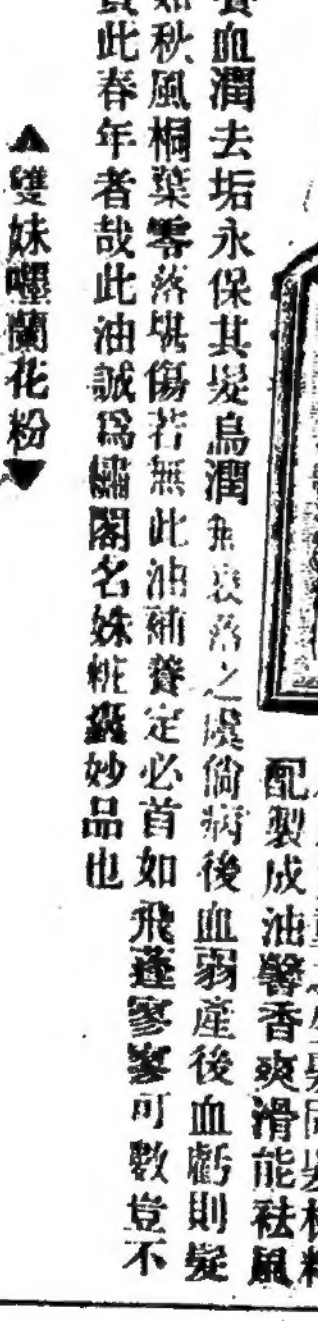 配製成油馨香爽滑能祛風
養血潤去垢永保其髮烏潤無衰落之虞倘病後血弱產後血虧則髮
如秋風桐葉零落堪傷若無此油補養定必首如飛蓬寥寥可數豈不
負此春年者哉此油誠為繡閣名姝粧奩妙品也
▲雙妹嚜蘭花粉▼